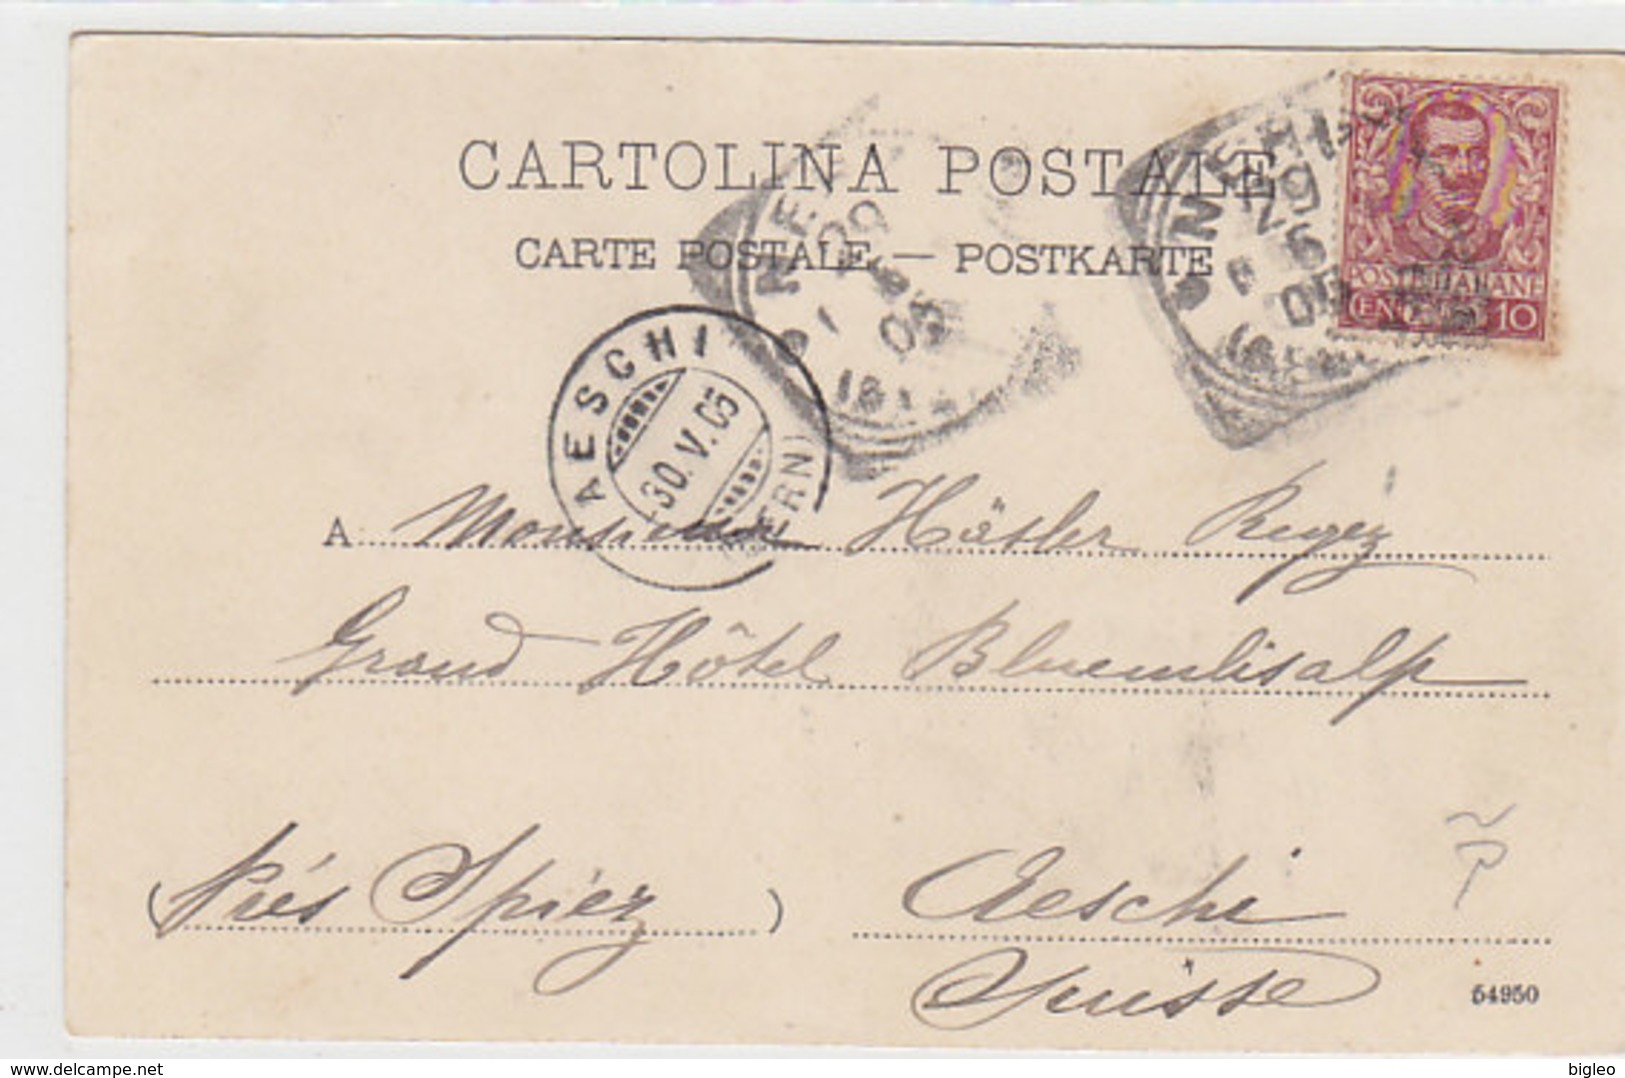 CARTOLINA POSTALE
CARTE POSTALE — POSTKARTE
POSTE ITALIANE
10
AESCHI
30.V.05
(BERN)
A Monsieur Häsler Regez
Grand Hôtel Bluemlisalp
(Près Spiez) Aeschi
Suisse
54950
delcampe.net
bigleo